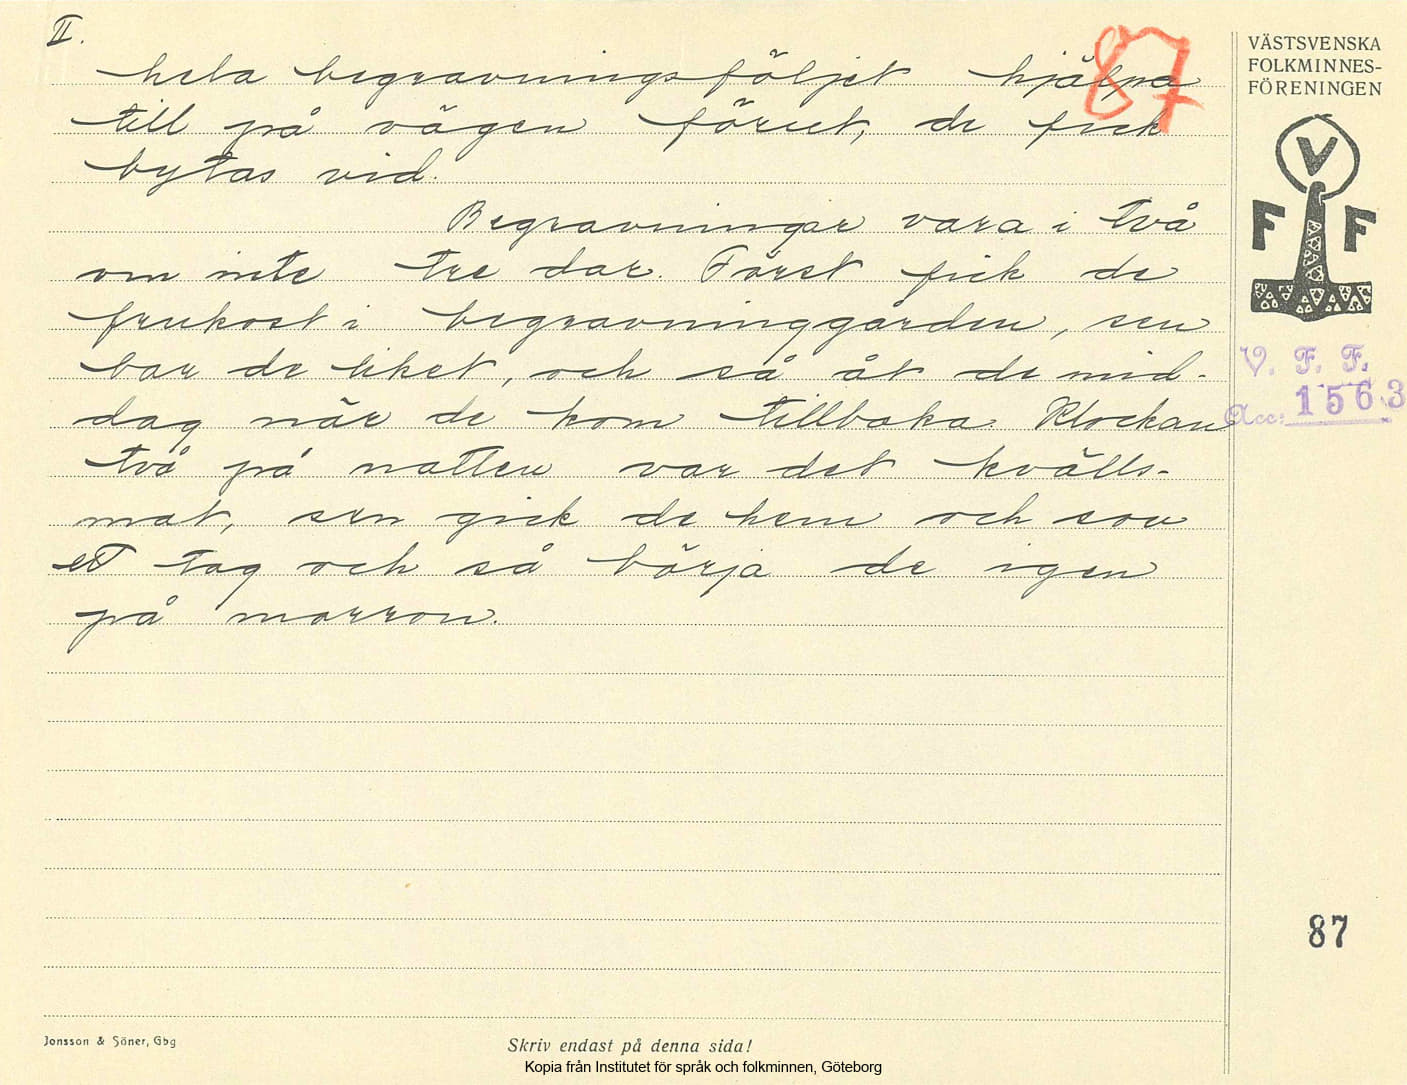 II.
87
hela begravningsföljet hjälpa
till på vägen förut, de fick
bytas vid.
Begravningar vara i två
om inte tre dar. Först fick de
frukost i begravninggården, sen
bar de liket, och så åt de mid-
dag när de kom tillbaka. Klockan
två på natten var det kvälls-
mat, sen gick de hem och sov
ett tag och så börja de igen
på morron.
VÄSTSVENSKA
FOLKMINNES-
FÖRENINGEN
V
F F
V. F. F.
Acc: 1563
87
Jonsson & Söner, Gbg
Skriv endast på denna sida!
Kopia från Institutet för språk och folkminnen, Göteborg